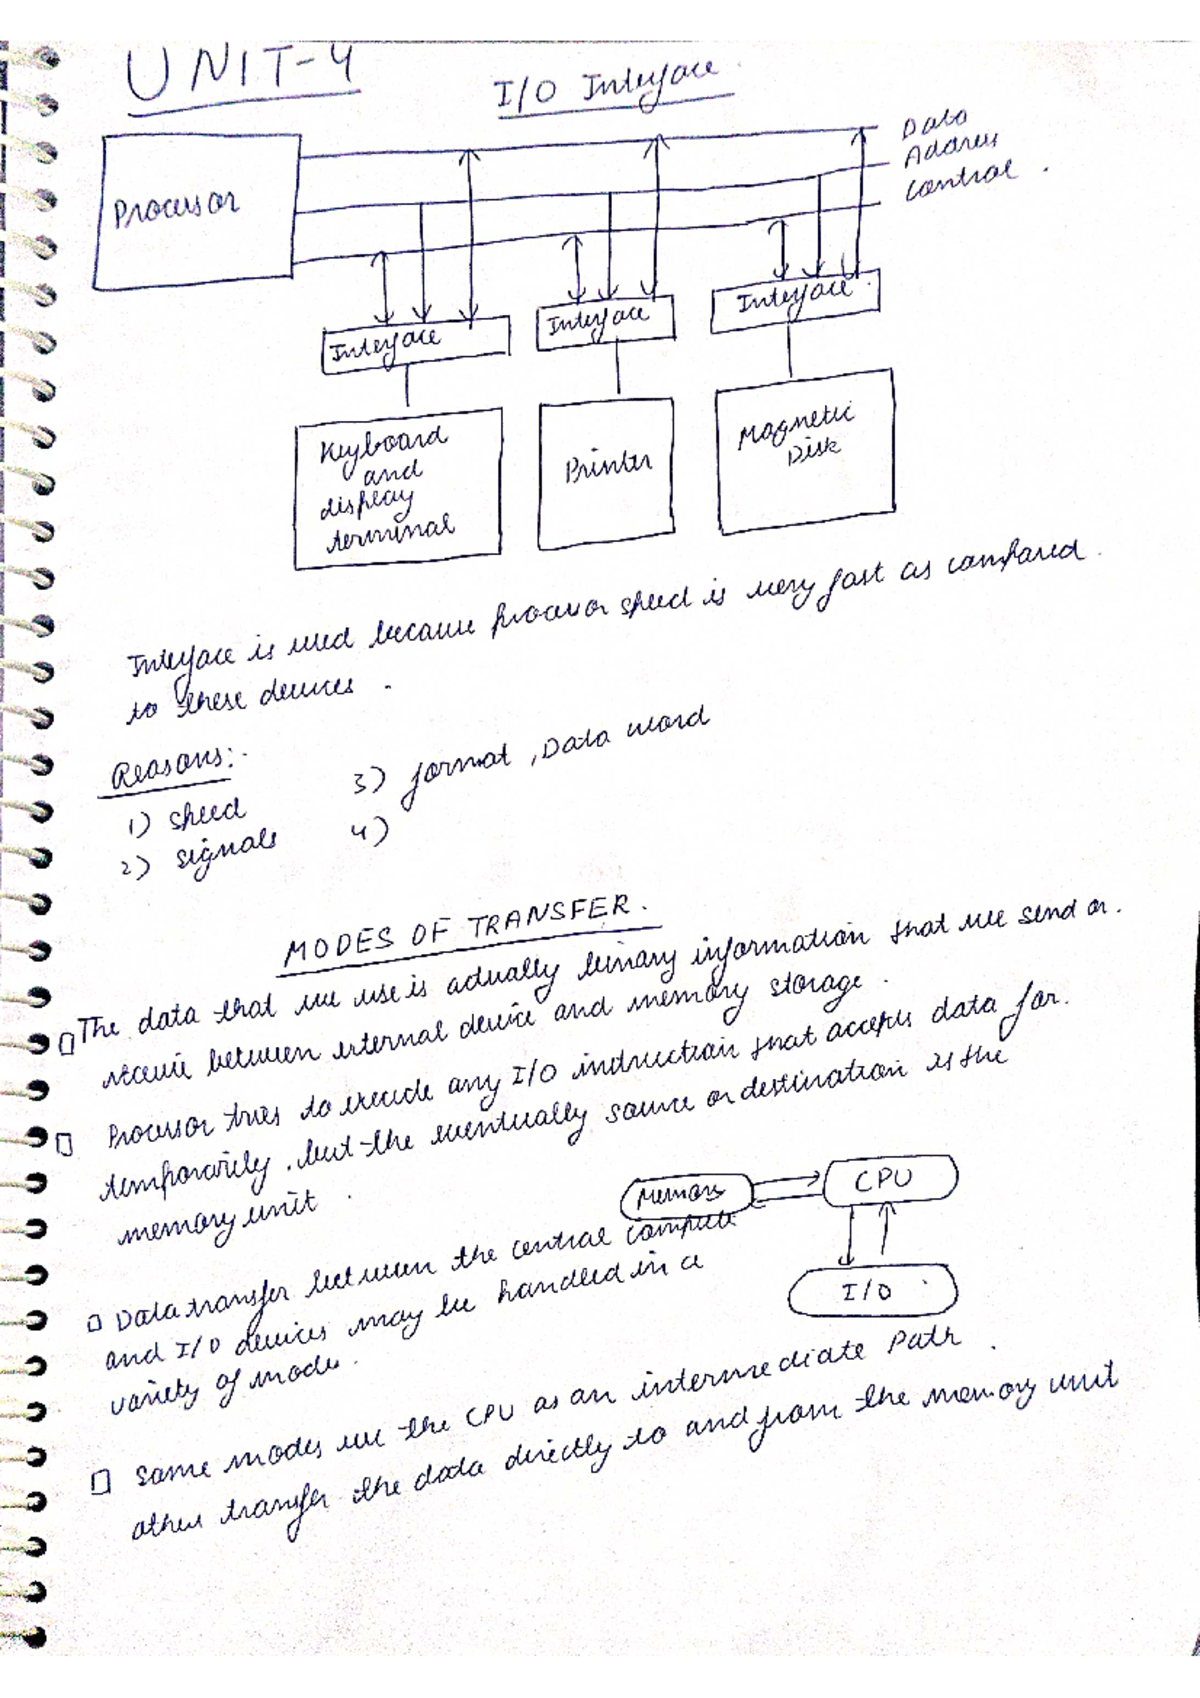 UNIT-4
I/O Interface
Data
Address
control
Processor
Interface
Interface
Interface
Keyboard
and
display
terminal
Printer
Magnetic
Disk
Interface is used because processor speed is very fast as compared
to these devices.
Reasons:-
1) speed
2) signals
3) format, Data word
4)
MODES OF TRANSFER.
The data that we use is actually binary information that we send or
receive between external device and memory storage.
Processor tries to execute any I/O instruction that accepts data for
temporarily, but the eventually source or destination is the
memory unit.
Memory
CPU
I/O
Data transfer between the central compute
and I/O devices may be handled in a
variety of modes.
Some modes use the CPU as an intermediate Path
other transfer the data directly to and from the memory unit